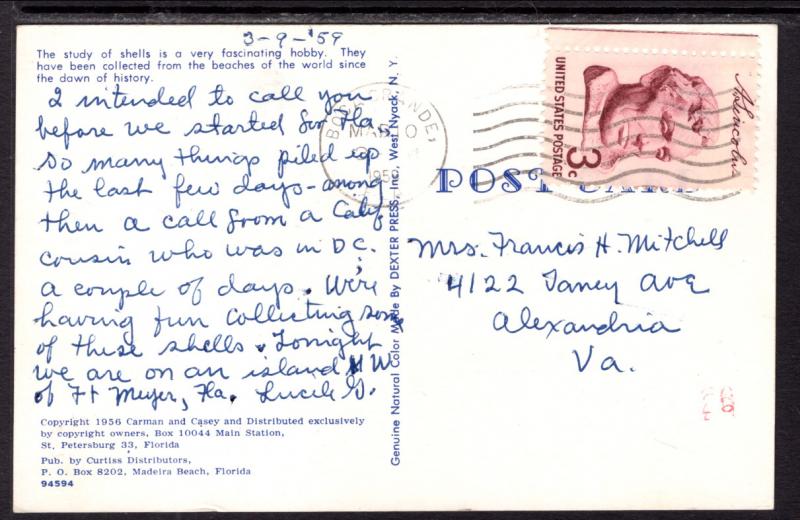 3-9-'59
The study of shells is a very fascinating hobby. They
have been collected from the beaches of the world since
the dawn of history.
I intended to call you
before we started for Fla.
So many things piled up
the last few days - among
them a call from a Calif
cousin who was in D.C.
a couple of days. We're
having fun collecting some
of these shells. Tonight
we are on an island N W
of Ft Meyer, Fla. Lucile G.
Copyright 1956 Carman and Casey and Distributed exclusively
by copyright owners, Box 10044 Main Station,
St. Petersburg 33, Florida
Pub. by Curtiss Distributors,
P. O. Box 8202, Madeira Beach, Florida
94594
Genuine Natural Color Made By DEXTER PRESS, Inc., West Nyack, N. Y.
MAR 10
195
POST CARD
UNITED STATES POSTAGE
3c
A. Lincoln
Mrs. Francis H. Mitchell
4122 Taney Ave
Alexandria
Va.